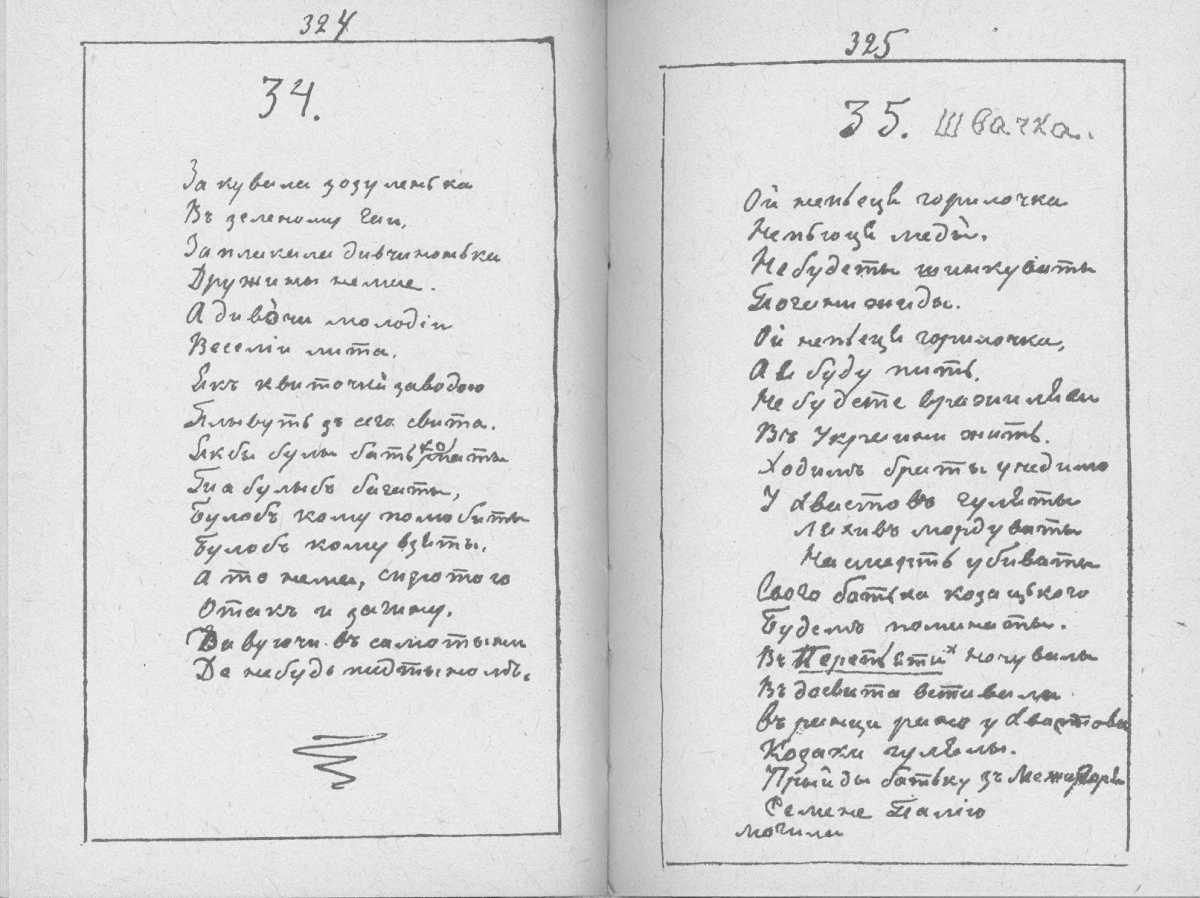 324
34.
Закувала зозуленька
Въ зеленому гаи,
Заплакала дивчинонька
Дружины немае.
А дивочи молодіи
Веселіи лита,
Якъ квиточкы заводою
Плывуть зъ сего свита.
Якбы булы батько маты
Та булыбъ багаты,
Булобъ кому полюбыты
Булобъ кому взяты.
А то нема, сиротою
Отакъ и загину.
Дивуючи въ самотыни
Де небудь підтыномъ.
325
35. Швачка.
Ой непьецся горилочка
Непьюця меды.
Небудеты шинкуваты
Погани жиды.
Ой непьецся горилочка,
А я буду пить,
Не будете вражи ляхи
Въ Украини жить.
Ходимъ браты
У Хвастовъ гуляты
Ляхивъ мордуваты
На смерть убиваты
Свого батька козацького
Будемъ поминаты.
Въ Перепяти х ночувалы
Въ досвита вставалы
въ ранци рано у Хвастови
Козаки гулялы.
Прыйды батьку зъ Межигоря
Семене Палію
могила